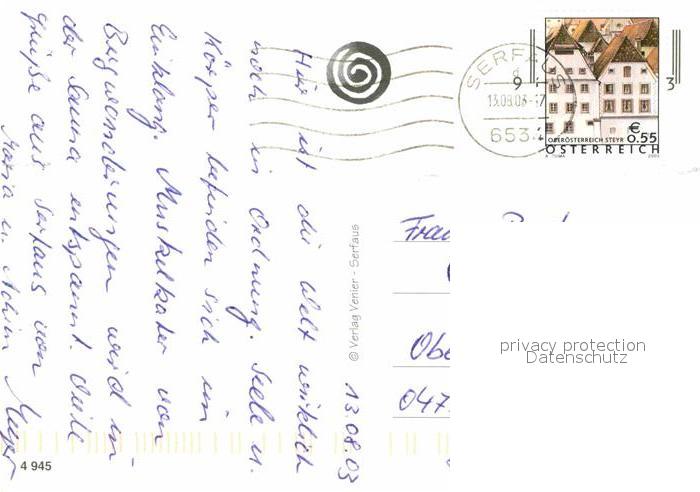 Hier ist die Welt wirklich
noch in Ordnung. Seele u.
Körper befinden sich im
Einklang. Muskelkater von
Bergwanderungen wird in
der Sauna entspannt. Viele
Grüße aus Serfaus von
Maria u. Achim Meyer
13.08.03
© Verlag Venier - Serfaus
4 945
SERFAUS
13.08.03-17
6534
OBERÖSTERREICH STEYR
€ 0.55
ÖSTERREICH
2003
Frau
Obe
047
privacy protection
Datenschutz